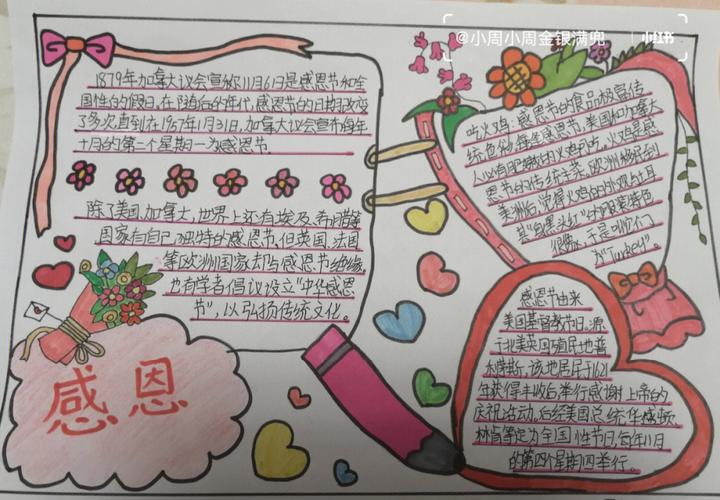 @小周小周金银满兜
小红书
1879年加拿大议会宣称11月6日是感恩节和全
国性的假日,在随后的年代,感恩节的日期改变
了多次,直到在1957年1月31日,加拿大议会宣布每年
十月的第二个星期一为感恩节.
除了美国,加拿大,世界上还有埃及,希腊等
国家有自己独特的感恩节,但英国,法国
等欧洲国家却与感恩节绝缘,
也有学者倡议设立“中华感恩
节”,以弘扬传统文化。
感恩
吃火鸡:感恩节的食品极富传
统色彩,每逢感恩节,美国和加拿大
人必有肥嫩的火鸡可吃。火鸡是感
恩节的传统主菜,欧洲移民到
美洲后,觉得火鸡的外观与土耳
其“身黑头红”的服装特色
很像,于是叫它们
为“Turkey”。
感恩节由来
美国基督教节日,源
于北美英国殖民地普
利茅斯,该地居民于1621
年获得丰收后,举行感谢上帝的
庆祝活动,后经美国总统华盛顿,
林肯等定为全国性节日,每年11月
的第四个星期四举行.